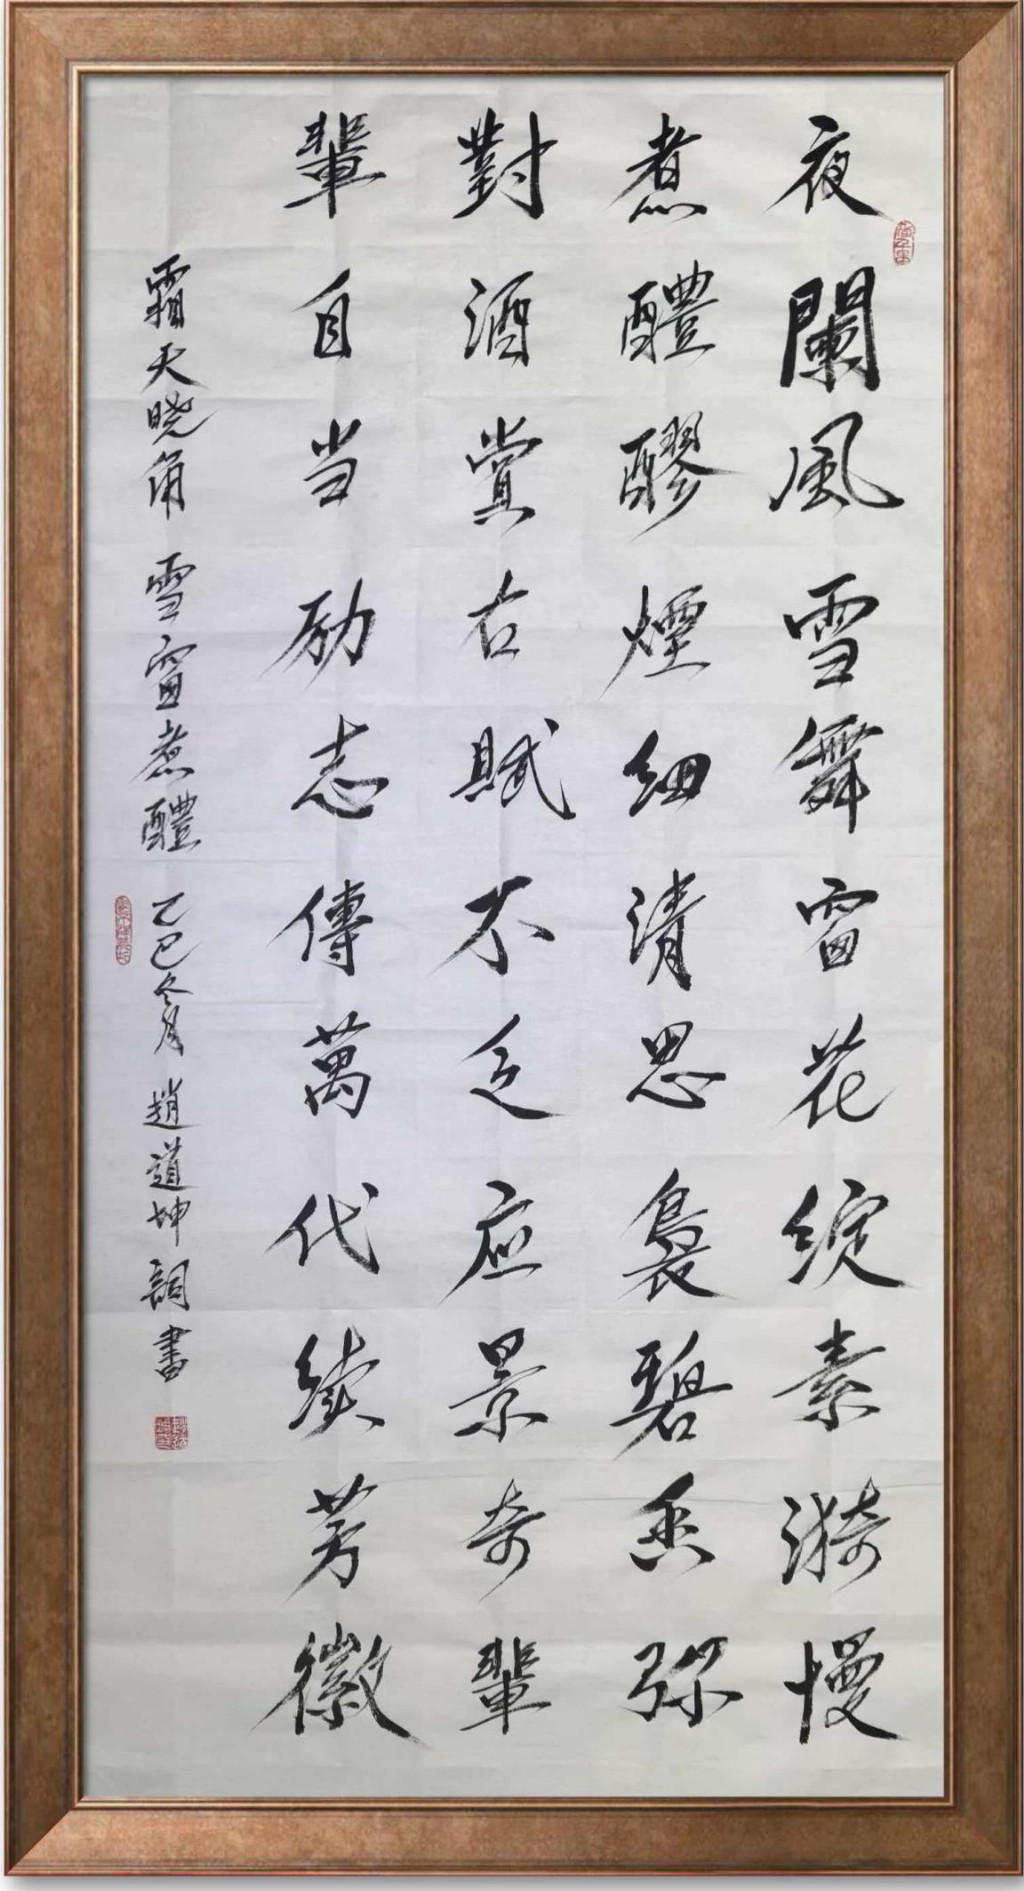 夜闌風雪舞窗花綻素漪慢
煮醴醪煙細清思裊碧香弥
對酒賞右賦不乏应景奇輩
輩自当励志傳萬代续芳徽
霜天晓角 雪窗煮醴 乙巳冬月 趙道坤詞書